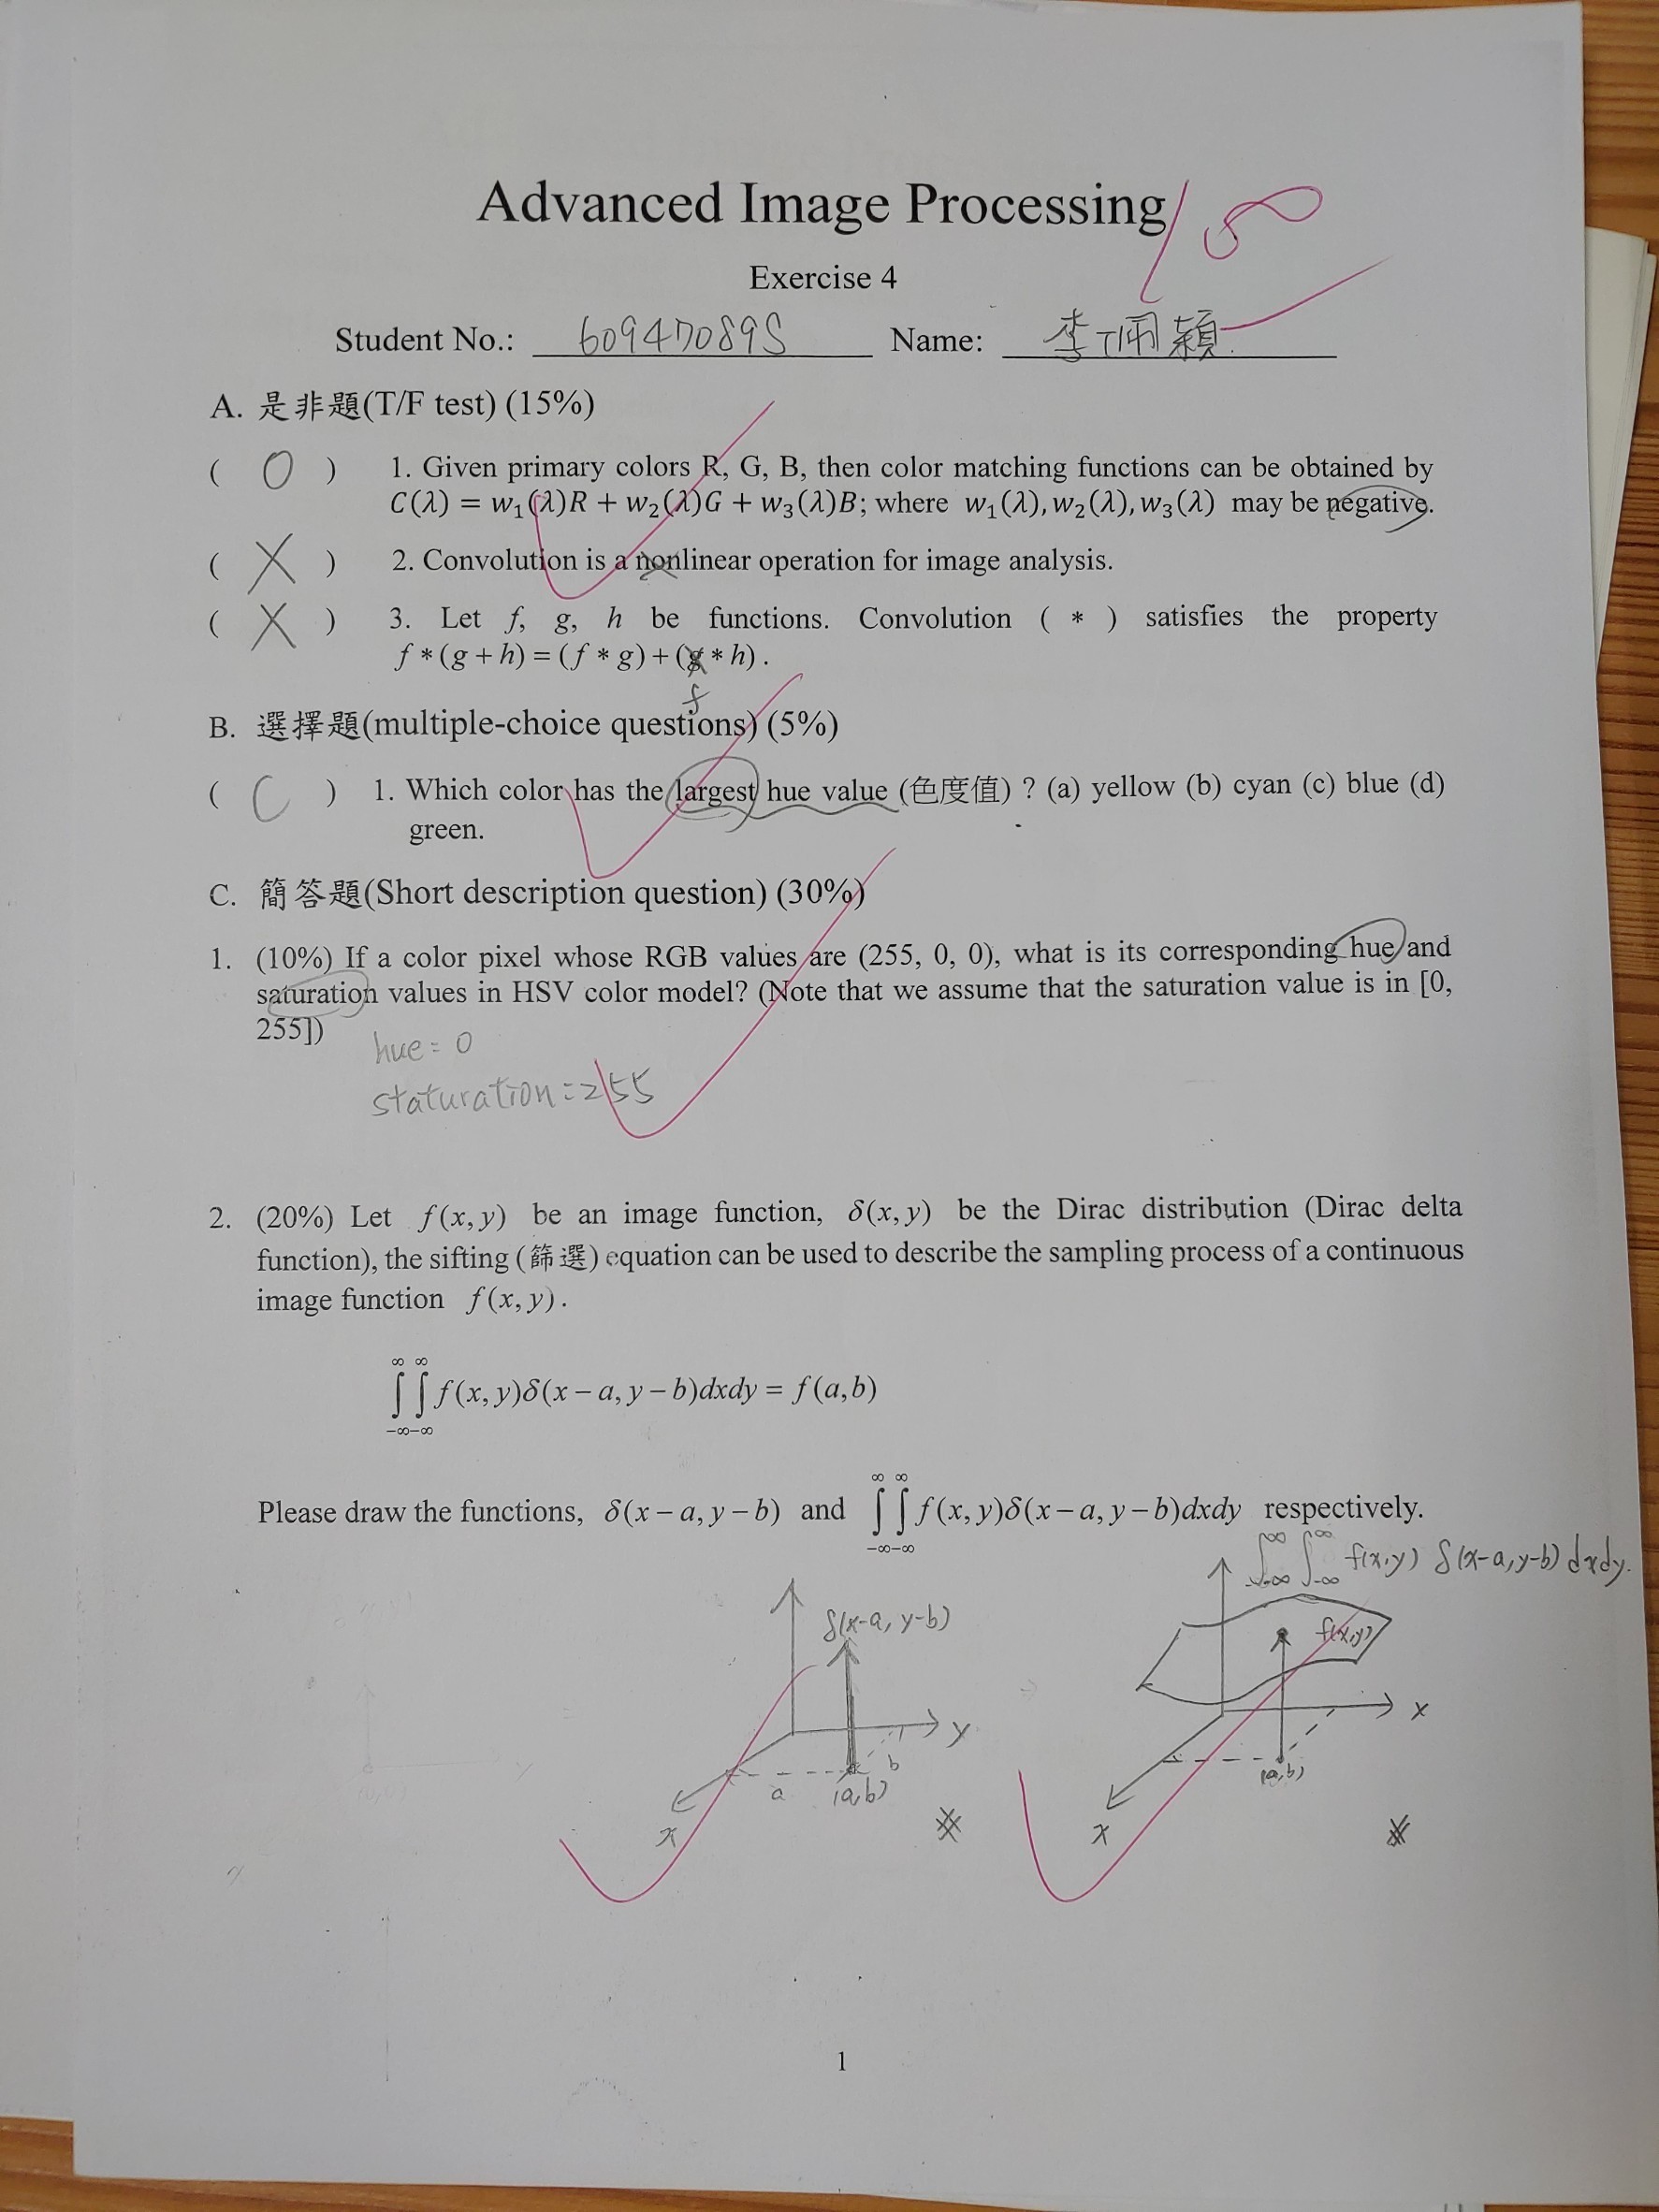 Advanced Image Processing
Exercise 4
Student No.: 60947089S Name: 李珮穎
A. 是非題(T/F test) (15%)
( O ) 1. Given primary colors R, G, B, then color matching functions can be obtained by
C(λ) = w₁(λ)R + w₂(λ)G + w₃(λ)B; where w₁(λ), w₂(λ), w₃(λ) may be negative.
( X ) 2. Convolution is a nonlinear operation for image analysis.
( X ) 3. Let f, g, h be functions. Convolution ( * ) satisfies the property
f * (g + h) = (f * g) + (g * h) .
f
B. 選擇題(multiple-choice questions) (5%)
( C ) 1. Which color has the largest hue value (色度值) ? (a) yellow (b) cyan (c) blue (d)
green.
C. 簡答題(Short description question) (30%)
1. (10%) If a color pixel whose RGB values are (255, 0, 0), what is its corresponding hue and
saturation values in HSV color model? (Note that we assume that the saturation value is in [0,
255])
hue = 0
staturation = 255
2. (20%) Let f(x, y) be an image function, δ(x, y) be the Dirac distribution (Dirac delta
function), the sifting (篩選) equation can be used to describe the sampling process of a continuous
image function f(x, y) .
∫_{-∞}^{∞} ∫_{-∞}^{∞} f(x, y)δ(x − a, y − b)dxdy = f(a,b)
Please draw the functions, δ(x − a, y − b) and ∫_{-∞}^{∞} ∫_{-∞}^{∞} f(x, y)δ(x − a, y − b)dxdy respectively.
∫_{-∞}^{∞} ∫_{-∞}^{∞} f(x,y) δ(x-a, y-b) dxdy.
δ(x-a, y-b)
f(x,y)
y
x
b
a
(a,b)
(a,b)
x
x
1